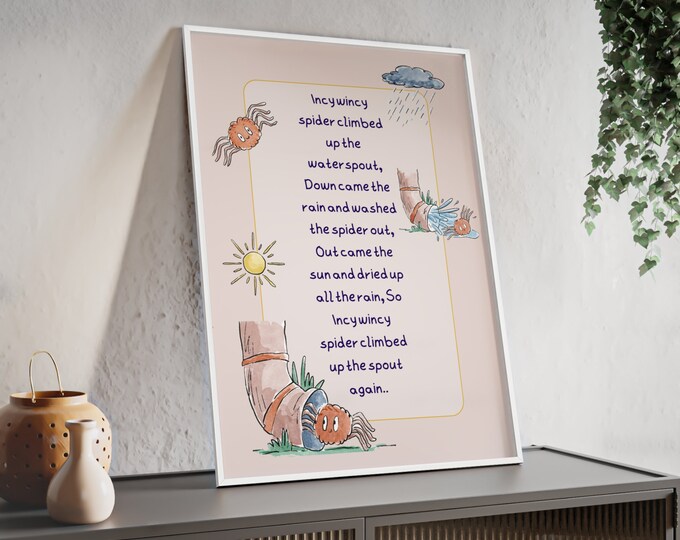 Incy wincy
spider climbed
up the
water spout,
Down came the
rain and washed
the spider out,
Out came the
sun and dried up
all the rain, So
Incy wincy
spider climbed
up the spout
again..